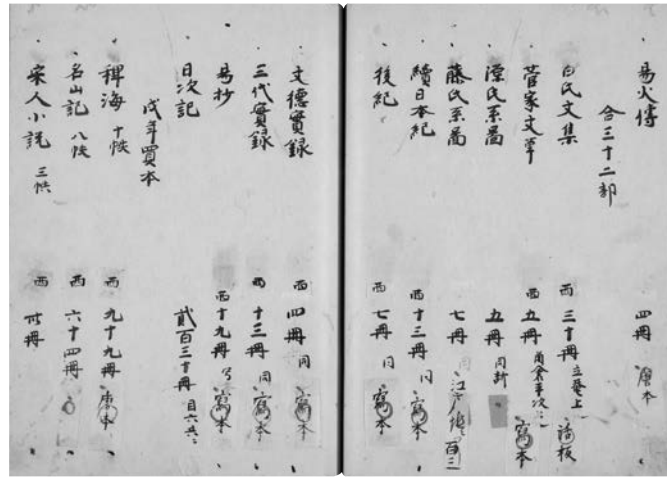 易火傳 四冊 唐本
合三十二部
白氏文集 西 三十冊 立菴上 活板
菅家文草 西 五冊 寫本
源氏系圖 五冊 同新
藤氏系圖 七冊
續日本紀 西 十三冊 同 寫本
後紀 西 七冊 同 寫本
文德實録 西 四冊 同 寫本
三代實録 西 十三冊 同 寫本
易抄 西 十九冊 寫本
日次記 貳百三十冊
戊年買本
稗海 十帙 西 九十九冊 唐本
名山記 八帙 西 六十四冊
宋人小説 三帙 西 卅冊